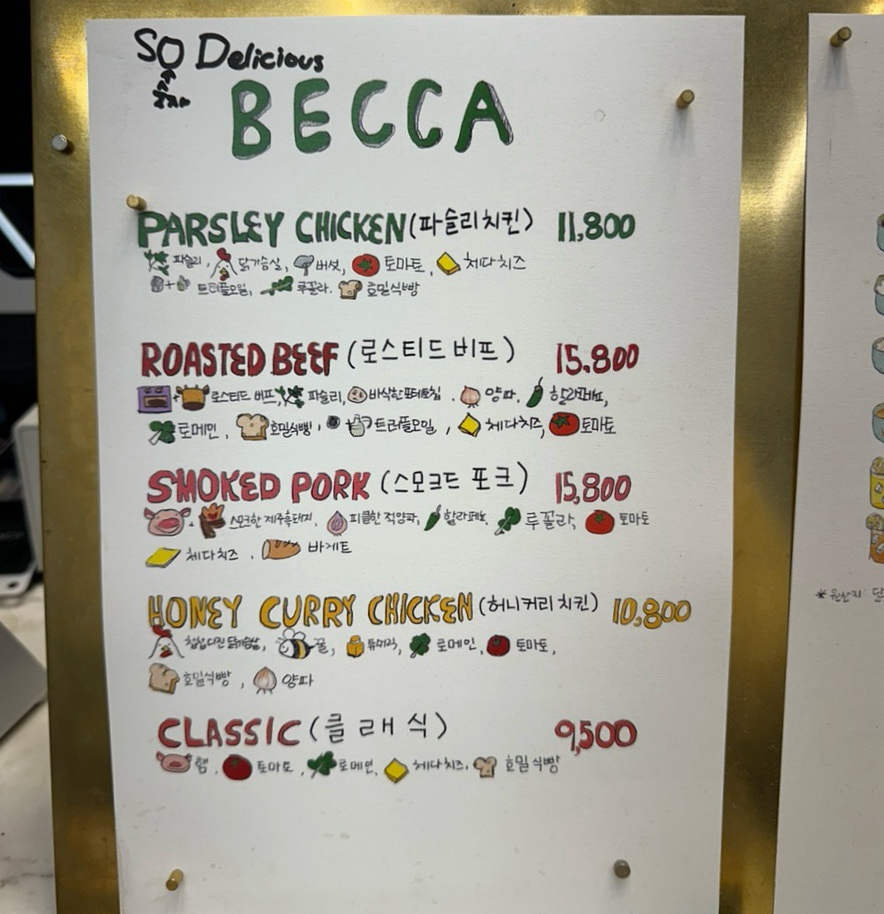 SO Delicious
BECCA
PARSLEY CHICKEN (파슬리 치킨) 11,800
파슬리, 닭가슴살, 버섯, 토마토, 체다치즈
+ 트러플오일, 루꼴라, 호밀식빵
ROASTED BEEF (로스티드 비프) 15.800
+ 로스티드 비프, 파슬리, 바삭한 포테토칩, 양파, 할라피뇨,
로메인, 호밀식빵, 트러플오일, 체다치즈, 토마토
SMOKED PORK (스모크드 포크) 15,800
+ 스모크한 제주흑돼지, 피클한 적양파, 할라피뇨, 루꼴라, 토마토
체다치즈, 바게트
HONEY CURRY CHICKEN (허니커리 치킨) 10,800
닭가슴살, 꿀, 로메인, 토마토,
호밀식빵, 양파
CLASSIC (클래식) 9,500
햄, 토마토, 로메인, 체다치즈, 호밀식빵
* 원산지: 닭